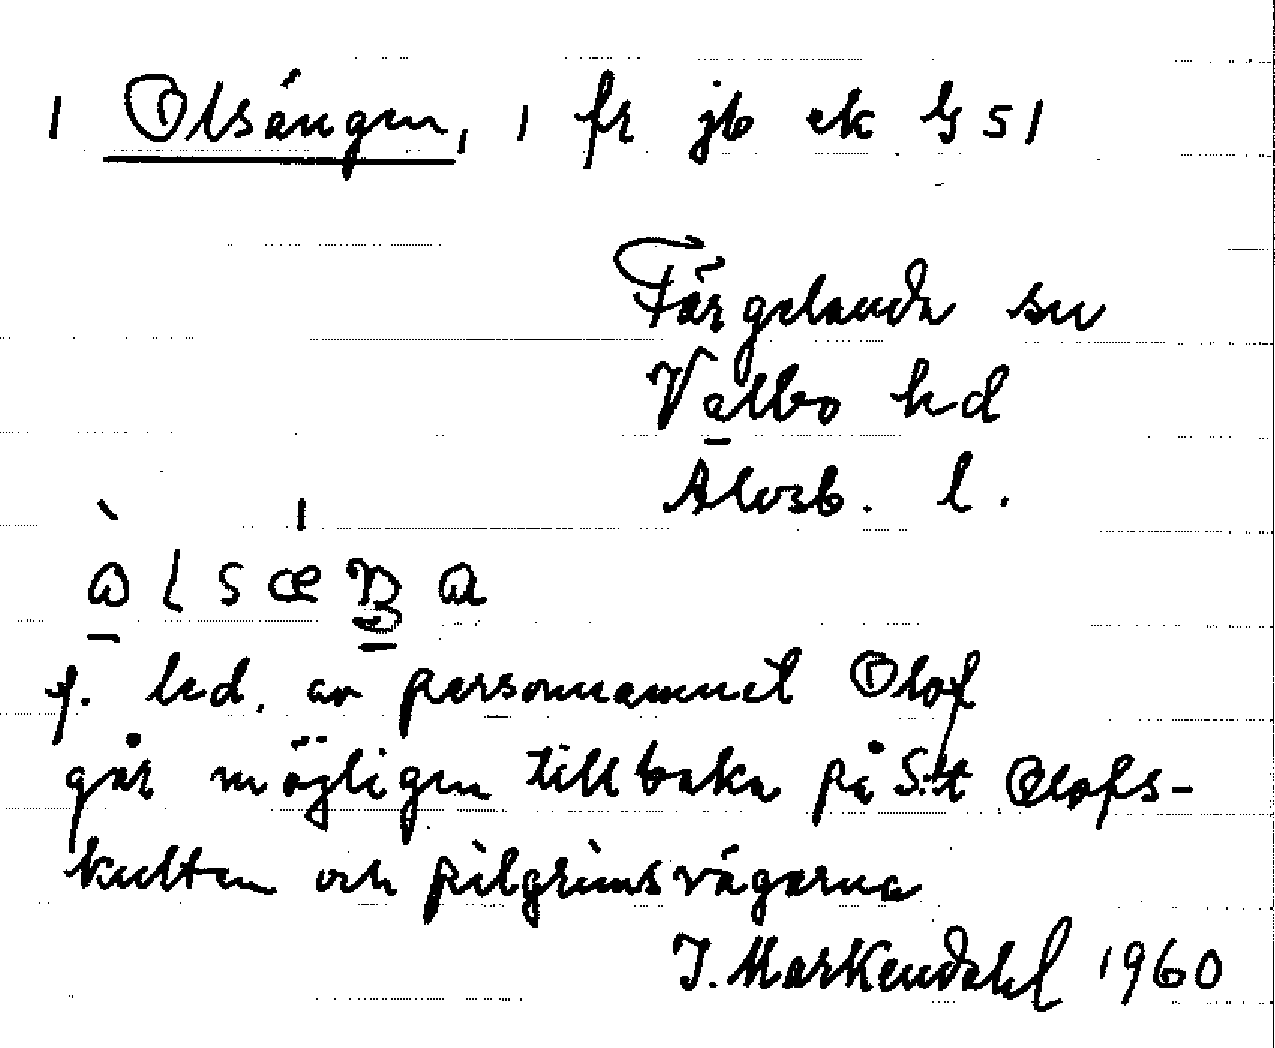 1 Olsängen, 1 fr jb ek G 51
Färgelanda sn
Valbo hd
Älvsb. l.
f. led. av personnamnet Olof
går möjligen tillbaka på S:t Olofs-
kulten och pilgrimsvägarna
J. Markendahl 1960